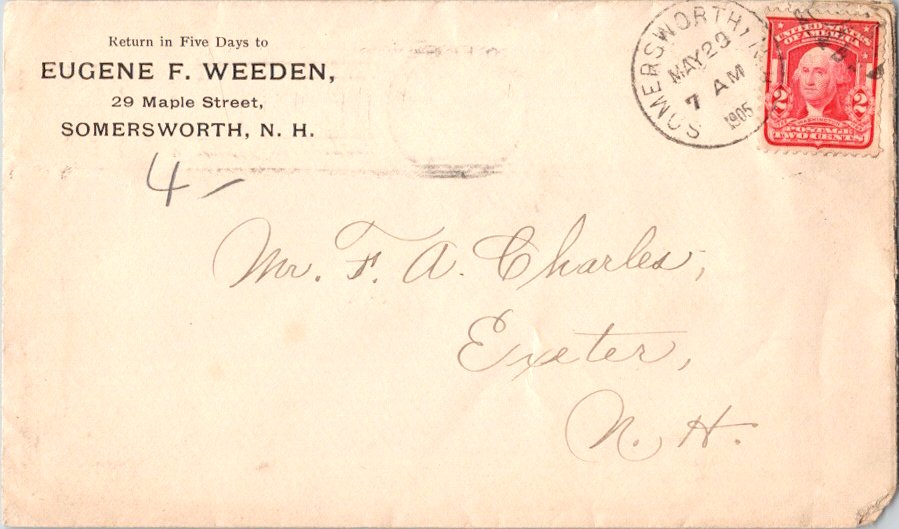 Return in Five Days to
EUGENE F. WEEDEN,
29 Maple Street,
SOMERSWORTH, N. H.
SOMERSWORTH, N.
MAY 29
7 AM
1905
UNITED STATES
OF AMERICA
2 2
POSTAGE
TWO CENTS
4 –
Mr. F. A. Charles,
Exeter,
N. H.